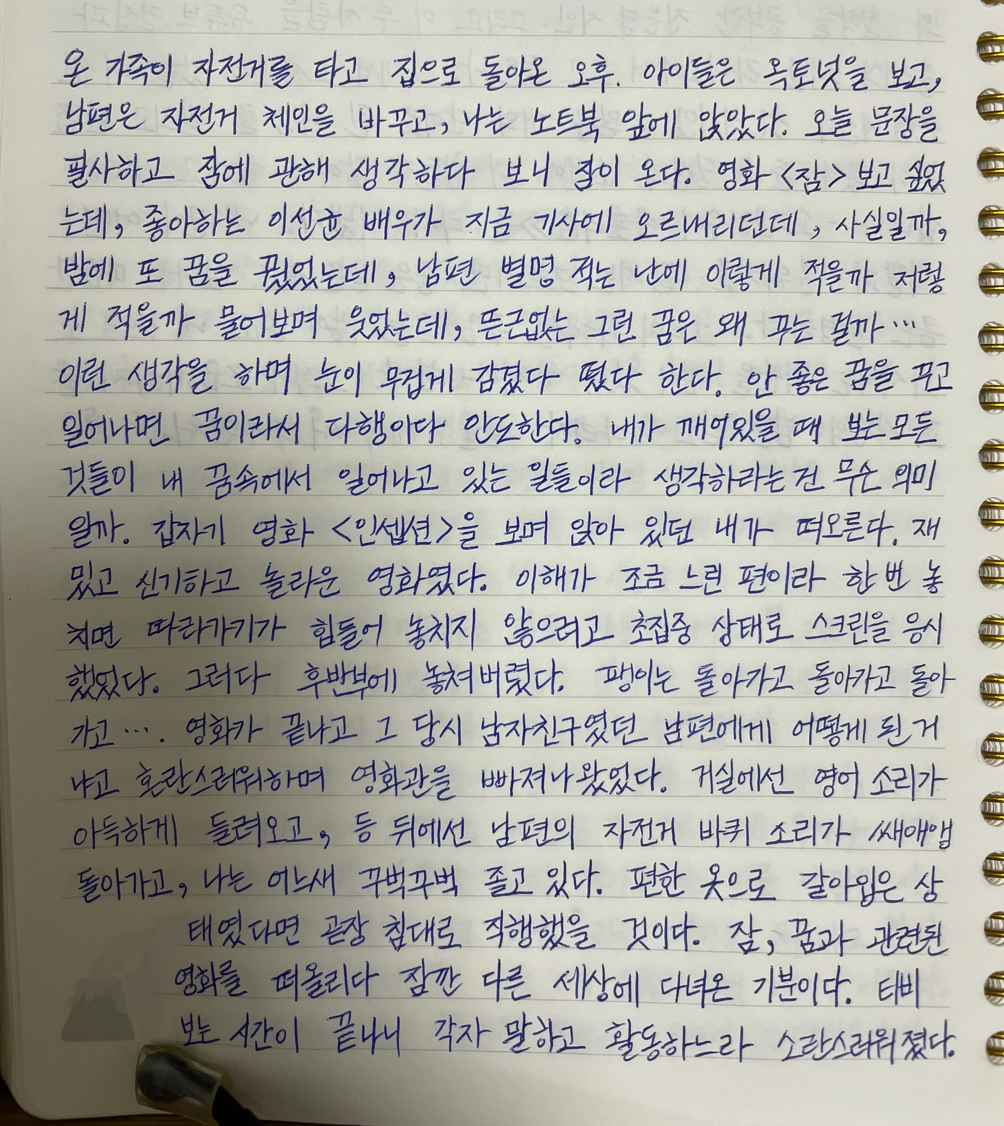 온 가족이 자전거를 타고 집으로 돌아온 오후. 아이들은 옥토넛을 보고,
남편은 자전거 체인을 바꾸고, 나는 노트북 앞에 앉았다. 오늘 문장을
필사하고 잠에 관해 생각하다 보니 잠이 온다. 영화 <잠> 보고 싶었
는데, 좋아하는 이선균 배우가 지금 기사에 오르내리던데, 사실일까,
밤에 또 꿈을 꿨었는데, 남편 별명 적는 난에 이렇게 적을까 저렇
게 적을까 물어보며 웃었는데, 뜬근없는 그런 꿈은 왜 꾸는 걸까…
이런 생각을 하며 눈이 무겁게 감겼다 떴다 한다. 안 좋은 꿈을 꾸고
일어나면 꿈이라서 다행이다 안도한다. 내가 깨어있을 때 보는 모든
것들이 내 꿈속에서 일어나고 있는 일들이라 생각하라는 건 무슨 의미
일까. 갑자기 영화 <인셉션>을 보며 앉아 있던 내가 떠오른다. 재
밌고 신기하고 놀라운 영화였다. 이해가 조금 느린 편이라 한 번 놓
치면 따라가기가 힘들어 놓치지 않으려고 초집중 상태로 스크린을 응시
했었다. 그러다 후반부에 놓쳐버렸다. 팽이는 돌아가고 돌아가고 돌아
가고…. 영화가 끝나고 그 당시 남자친구였던 남편에게 어떻게 된 거
냐고 혼란스러워하며 영화관을 빠져나왔었다. 거실에선 영어 소리가
아득하게 들려오고, 등 뒤에선 남편의 자전거 바퀴 소리가 쌔애앰
돌아가고, 나는 어느새 꾸벅꾸벅 졸고 있다. 편한 옷으로 갈아입은 상
태였다면 곧장 침대로 직행했을 것이다. 잠, 꿈과 관련된
영화를 떠올리다 잠깐 다른 세상에 다녀온 기분이다. 티비
보는 시간이 끝나니 각자 말하고 활동하느라 소란스러워졌다.